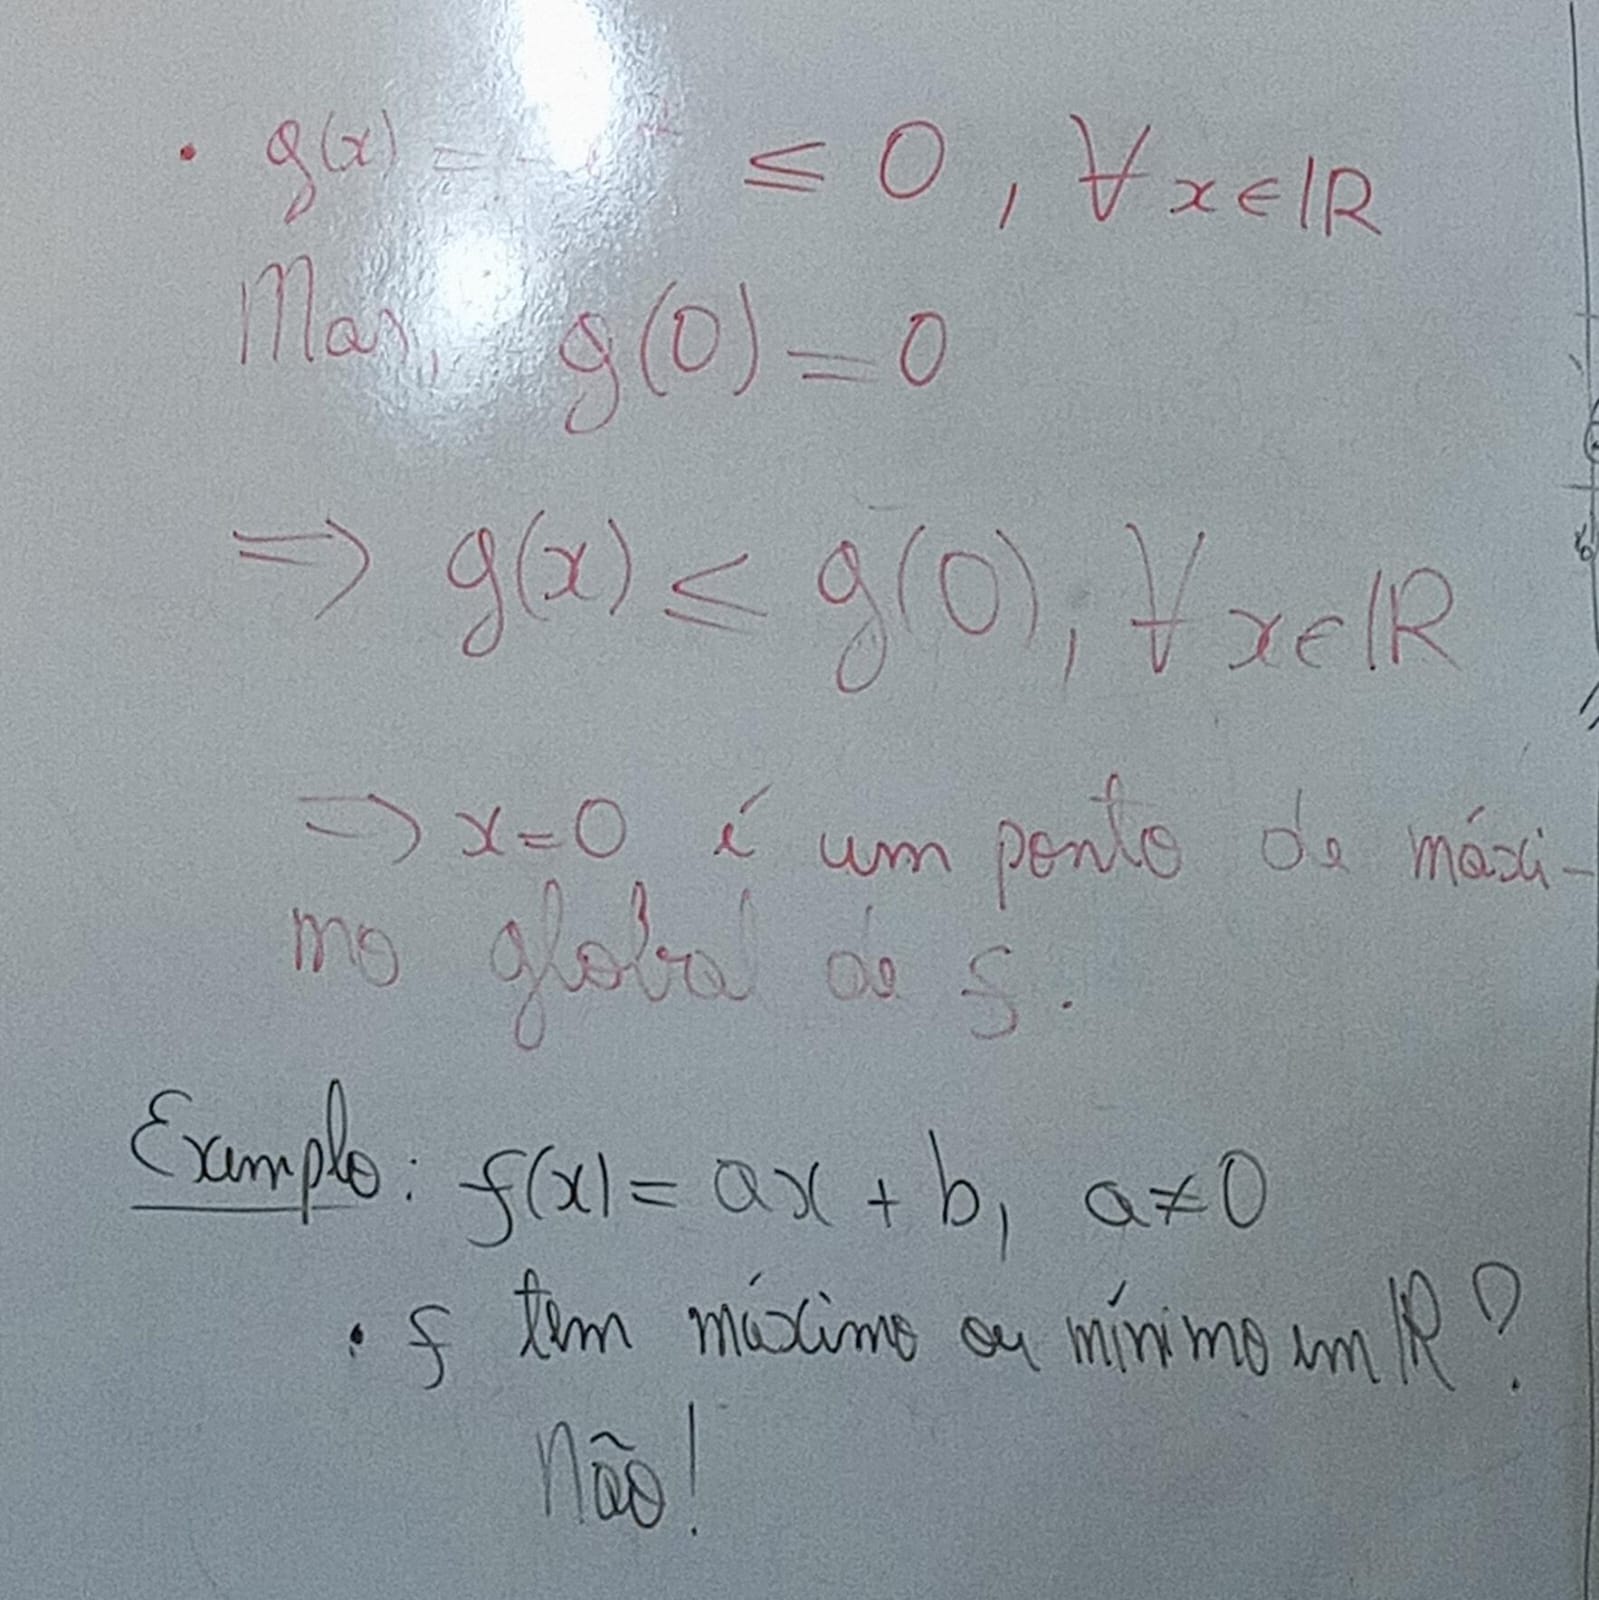 • g(x) = ≤ 0, ∀ x ∈ ℝ
Mas, g(0) = 0
⇒ g(x) ≤ g(0), ∀ x ∈ ℝ
⇒ x = 0 é um ponto de máxi-
mo global de f.
Exemplo: f(x) = ax + b, a ≠ 0
• f tem máximo ou mínimo em ℝ?
Não!